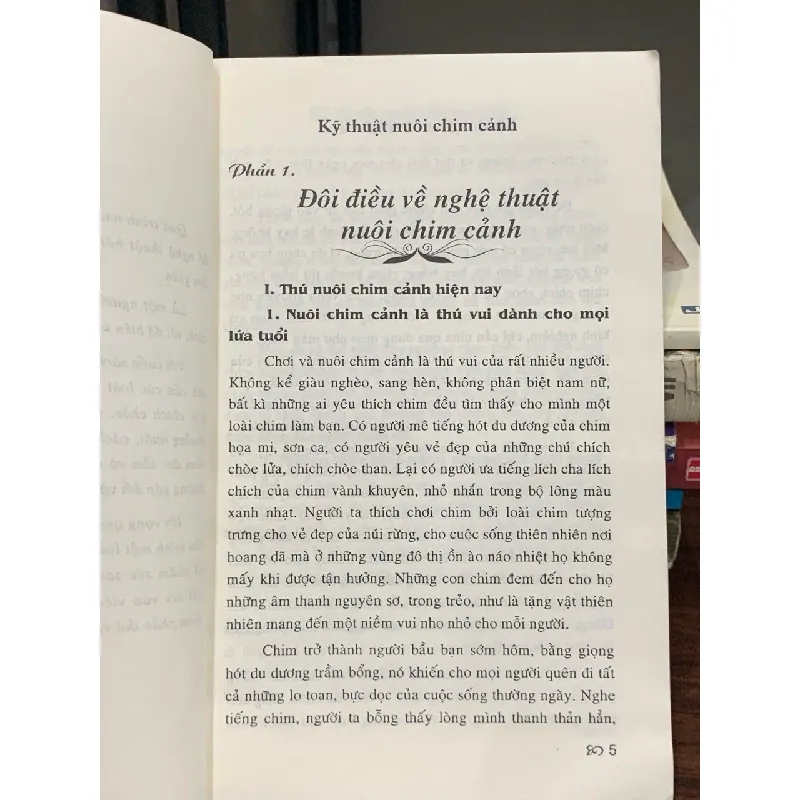 Kỹ thuật nuôi chim cảnh
Phần 1.
Đôi điều về nghệ thuật
nuôi chim cảnh
I. Thú nuôi chim cảnh hiện nay
1. Nuôi chim cảnh là thú vui dành cho mọi
lứa tuổi
Chơi và nuôi chim cảnh là thú vui của rất nhiều người.
Không kể giàu nghèo, sang hèn, không phân biệt nam nữ,
bất kì những ai yêu thích chim đều tìm thấy cho mình một
loài chim làm bạn. Có người mê tiếng hót du dương của chim
họa mi, sơn ca, có người yêu vẻ đẹp của những chú chích
chòe lửa, chích chòe than. Lại có người ưa tiếng lích cha lích
chích của chim vành khuyên, nhỏ nhắn trong bộ lông màu
xanh nhạt. Người ta thích chơi chim bởi loài chim tượng
trưng cho vẻ đẹp của núi rừng, cho cuộc sống thiên nhiên nơi
hoang dã mà ở những vùng đô thị ồn ào náo nhiệt họ không
mấy khi được tận hưởng. Những con chim đem đến cho họ
những âm thanh nguyên sơ, trong trẻo, như là tặng vật thiên
nhiên mang đến một niềm vui nho nhỏ cho mỗi người.
Chim trở thành người bầu bạn sớm hôm, bằng giọng
hót du dương trầm bổng, nó khiến cho mọi người quên đi tất
cả những lo toan, bực dọc của cuộc sống thường ngày. Nghe
tiếng chim, người ta bỗng thấy lòng mình thanh thản hẳn,
5